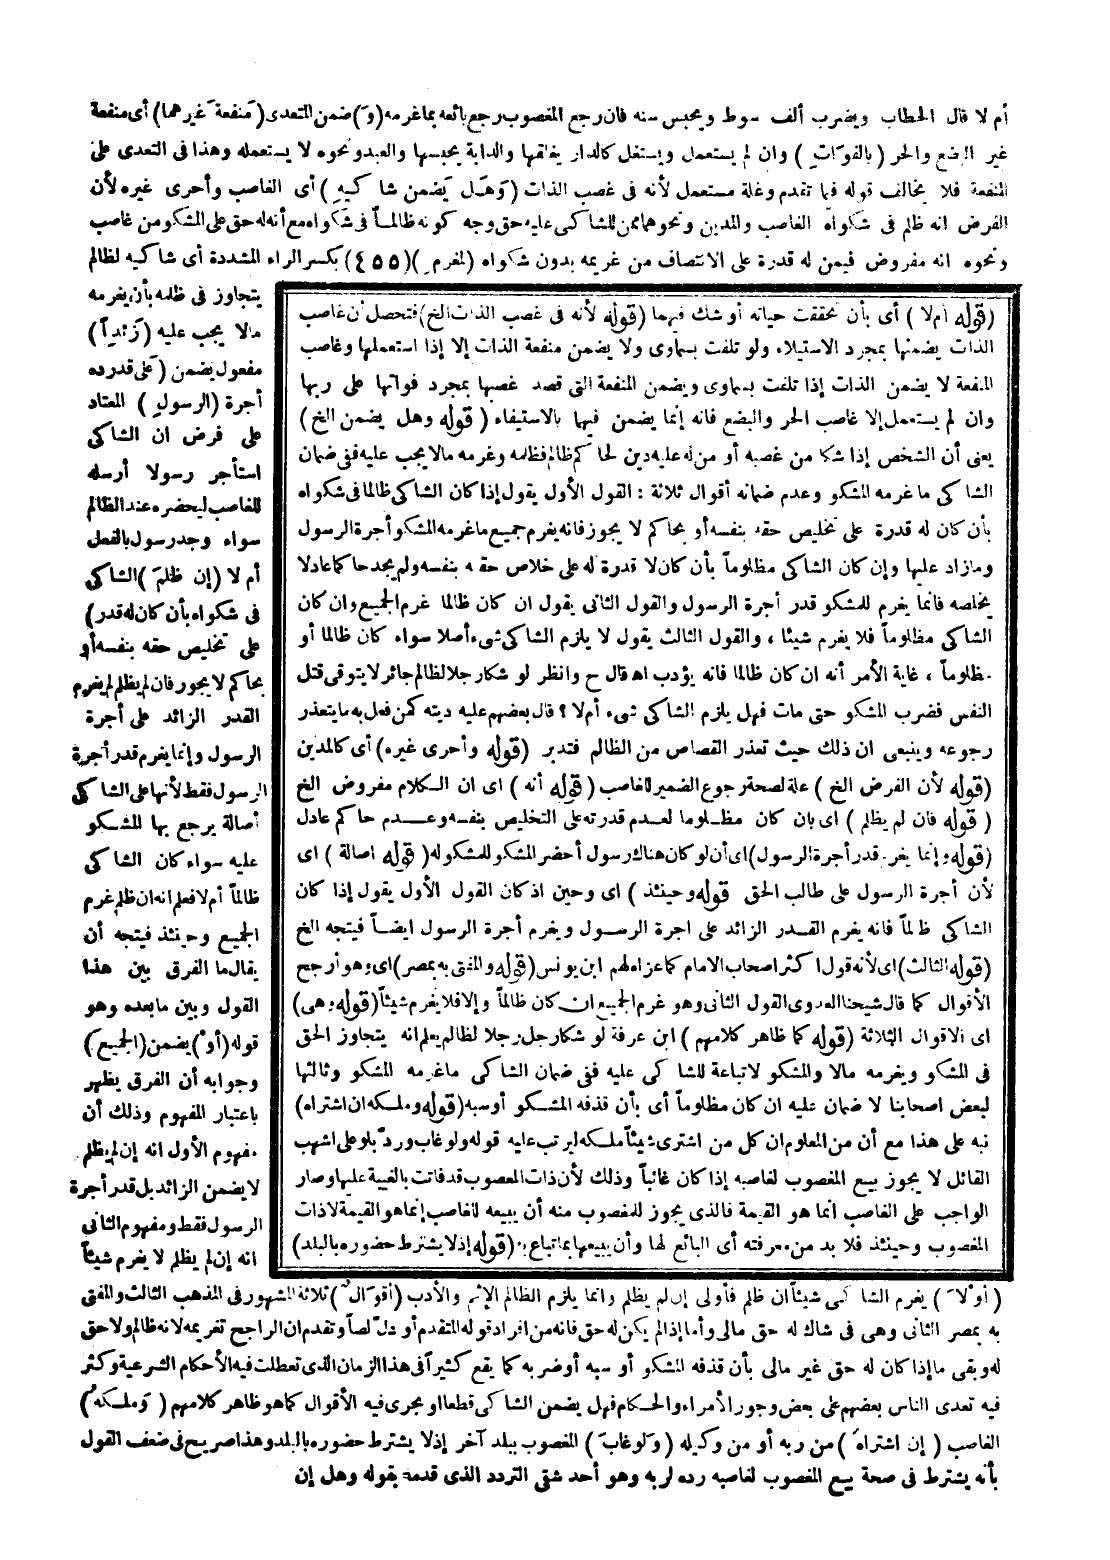 أم لا قال الحطاب ويضرب ألف سوط ويحبس سنه فان رجع المغصوب رجع بائعه بما غرمه (وَ) ضمن المتعدى (مَنفعةَ غيرهما) أى منفعة
غير البضع والحر (بالفواتِ) وان لم يستعمل ويستغل كالدار يغلقها والدابة يحبسها والعبد ونحوه لا يستعمله وهذا فى التعدى على
المنفعة فلا يخالف قوله فيما تقدم وغلة مستعمل لأنه فى غصب الذات (وَهَل يَضمن شاكيهِ) أى الغاصب وأحرى غيره لأن
الفرض انه ظلم فى شكواه الغاصب والمدين ونحوهما ممن للشاكى عليه حق وجه كونه ظالماً فى شكواه مع أنه له حق على المشكو من غاصب
ونحوه انه مفروض فيمن له قدرة على الانتصاف من غريمه بدون شكواه (لمغرمٍ) (٤٥٥) بكسر الراء المشددة أى شاكيه لظالم
يتجاوز فى ظلمه بأن يغرمه
مالا يجب عليه (زَائداً)
مفعول يضمن (عَلى قدر ده
أجرة (الرسولِ) المعتاد
على فرض ان الشاكى
استأجر رسولا أرسله
للغاصب ليحضره عند الظالم
سواء وجد رسول بالفعل
أم لا (إن ظلمَ) الشاكى
فى شكواه بأن كان له قدر)
على تخليص حقه بنفسه أو
بحاكم لا يجور فان لم يظلم لم يغرم
القدر الزائد على أجرة
الرسول وإنما يغرم قدر أجرة
الرسول فقط لأنها على الشاكى
أصالة يرجع بها المشكو
عليه سواء كان الشاكى
ظالماً أم لا فعلم انه ان ظلم غرم
الجميع وحينئذ فيتجه أن
يقال ما الفرق بين هذا
القول وبين ما بعده وهو
قوله (أو) يضمن (الجميعَ)
وجوابه أن الفرق يظهر
باعتبار المفهوم وذلك أن
مفهوم الأول انه إن لم يظلم
لا يضمن الزائد بل قدر أجرة
الرسول فقط ومفهوم الثانى
انه إن لم يظلم لا يغرم شيئاً
(قوله أم لا) أى بأن تحققت حياته أو شك فيهما (قوله لأنه فى غصب الذات الخ) فتحصل أن غاصب
الذات يضمنها بمجرد الاستيلاء ولو تلفت بسماوى ولا يضمن منفعة الذات إلا إذا استعملها وغاصب
المنفعة لا يضمن الذات إذا تلفت بسماوى ويضمن المنفعة التى قصد غصبها بمجرد فواتها على ربها
وان لم يستعمل إلا غاصب الحر والبضع فانه إنما يضمن فيها بالاستيفاء (قوله وهل يضمن الخ)
يعنى أن الشخص إذا شكا من غصبه أو من له عليه دين لحاكم ظالم فظلمه وغرمه مالا يجب عليه ففى ضمان
الشاكى ما غرمه المشكو وعدم ضمانه أقوال ثلاثة : القول الأول يقول إذا كان الشاكى ظالما فى شكواه
بأن كان له قدرة على تخليص حقه بنفسه أو بحاكم لا يجوز فانه يغرم جميع ما غرمه المشكو أجرة الرسول
ومازاد عليها وإن كان الشاكى مظلوماً بأن كان لا قدرة له على خلاص حقه بنفسه ولم يجد حاكما عادلا
يخلصه فانما يغرم للمشكو قدر أجرة الرسول والقول الثانى يقول ان كان ظالما غرم الجميع وان كان
الشاكى مظلوماً فلا يغرم شيئا ، والقول الثالث يقول لا يلزم الشاكى شىء أصلا سواء كان ظالما أو
مظلوماً ، غاية الأمر أنه ان كان ظالما فانه يؤدب اه قال ح وانظر لو شكا رجلا لظالم جائر لا يتوقى قتل
النفس فضرب المشكو حتى مات فهل يلزم الشاكى شىء أم لا ؟ قال بعضهم عليه ديته كمن فعل به ما يتعذر
رجوعه وينبغى ان ذلك حيث تعذر القصاص من الظالم فتدبر (قوله وأحرى غيره) أى كالمدين
(قوله لأن الفرض الخ) علة لصحة رجوع الضمير للغاصب (قوله أنه) اى ان الكلام مفروض الخ
(قوله فان لم يظلم) اى بان كان مظلوما لعدم قدرته على التخليص بنفسه وعدم حاكم عادل
(قوله وإنما يغرم قدر أجرة الرسول) اى أن لو كان هناك رسول أحضر المشكو للمشكو له (قوله اصالة) اى
لأن أجرة الرسول على طالب الحق (قوله وحينئذ) اى وحين اذ كان القول الأول يقول إذا كان
الشاكى ظالماً فانه يغرم القدر الزائد على اجرة الرسول ويغرم أجرة الرسول ايضاً فيتجه الخ
(قوله الثالث) اى لأنه قول اكثر اصحاب الامام كما عزاه لهم ابن يونس (قوله والمفتى به بمصر) اى وهو أرجح
الأقوال كما قال شيخنا العدوى القول الثانى وهو غرم الجميع ان كان ظالماً وإلا فلا يغرم شيئاً (قوله وهى)
اى الاقوال الثلاثة (قوله كما ظاهر كلامهم) ابن عرفة لو شكا رجل رجلا لظالم يعلم انه يتجاوز الحق
فى المشكو ويغرمه مالا والمشكو لا تباعة للشاكى عليه ففى ضمان الشاكى ما غرمه المشكو وثالثها
لبعض اصحابنا لا ضمان عليه ان كان مظلوماً أى بأن قذفه المشكو أو سبه (قوله وملكه ان اشتراه)
نبه على هذا مع أن من المعلوم ان كل من اشترى شيئاً ملكه ليرتب عليه قوله ولو غاب ورد بلو على اشهب
القائل لا يجوز بيع المغصوب لغاصبه إذا كان غائباً وذلك لأن ذات المغصوب قد فاتت بالغيبة عليها وصار
الواجب على الغاصب انما هو القيمة فالذى يجوز للمغصوب منه أن يبيعه لغاصب إنما هو القيمة لا ذات
المغصوب وحينئذ فلا بد من معرفته أى البائع لها وأن يبيعها بما تباع به (قوله إذ لا يشترط حضوره بالبلد)
(أو لاَ) يغرم الشاكى شيئاً ان ظلم فأولى إن لم يظلم وانما يلزم الظالم الإثم والأدب (أقوالٌ) ثلاثة المشهور فى المذهب الثالث والمفتى
به بمصر الثانى وهى فى شاك له حق مالى وأما إذا لم يكن له حق فانه من افراد قوله المتقدم أو دلّ لصاً وتقدم ان الراجح تغريمه لانه ظالم ولا حق
له وبقى ما إذا كان له حق غير مالى بأن قذفه المشكو أو سبه أو ضربه كما يقع كثيراً فى هذا الزمان الذى تعطلت فيه الأحكام الشرعية وكثر
فيه تعدى الناس بعضهم على بعض وجور الأمراء والحكام فهل يضمن الشاكى قطعا او يجرى فيه الأقوال كما هو ظاهر كلامهم (وَملكهُ)
الغاصب (إن اشتراهُ) من ربه أو من وكيله (وَلو غابَ) المغصوب ببلد آخر إذ لا يشترط حضوره بالبلد وهذا صريح فى ضعف القول
بأنه يشترط فى صحة بيع المغصوب لغاصبه رده لربه وهو أحد شقى التردد الذى قدمه بقوله وهل إن